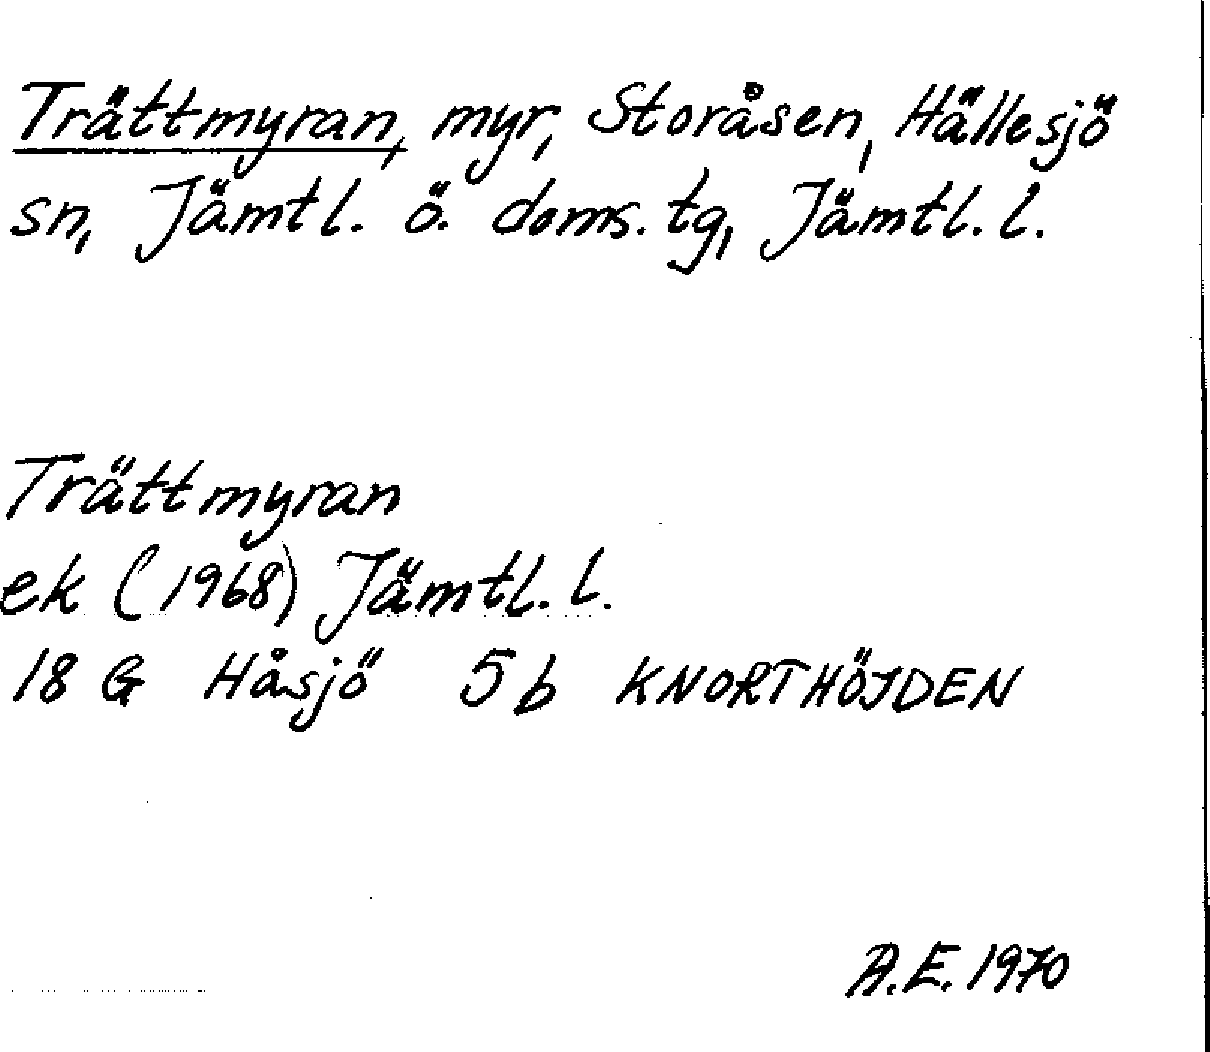 Trättmyran, myr, Storåsen, Hällesjö
sn, Jämtl. ö. doms. tg, Jämtl. l.
Trättmyran
ek (1968) Jämtl. l.
18 G Håsjö 5 b KNORTHÖJDEN
A.E. 1970